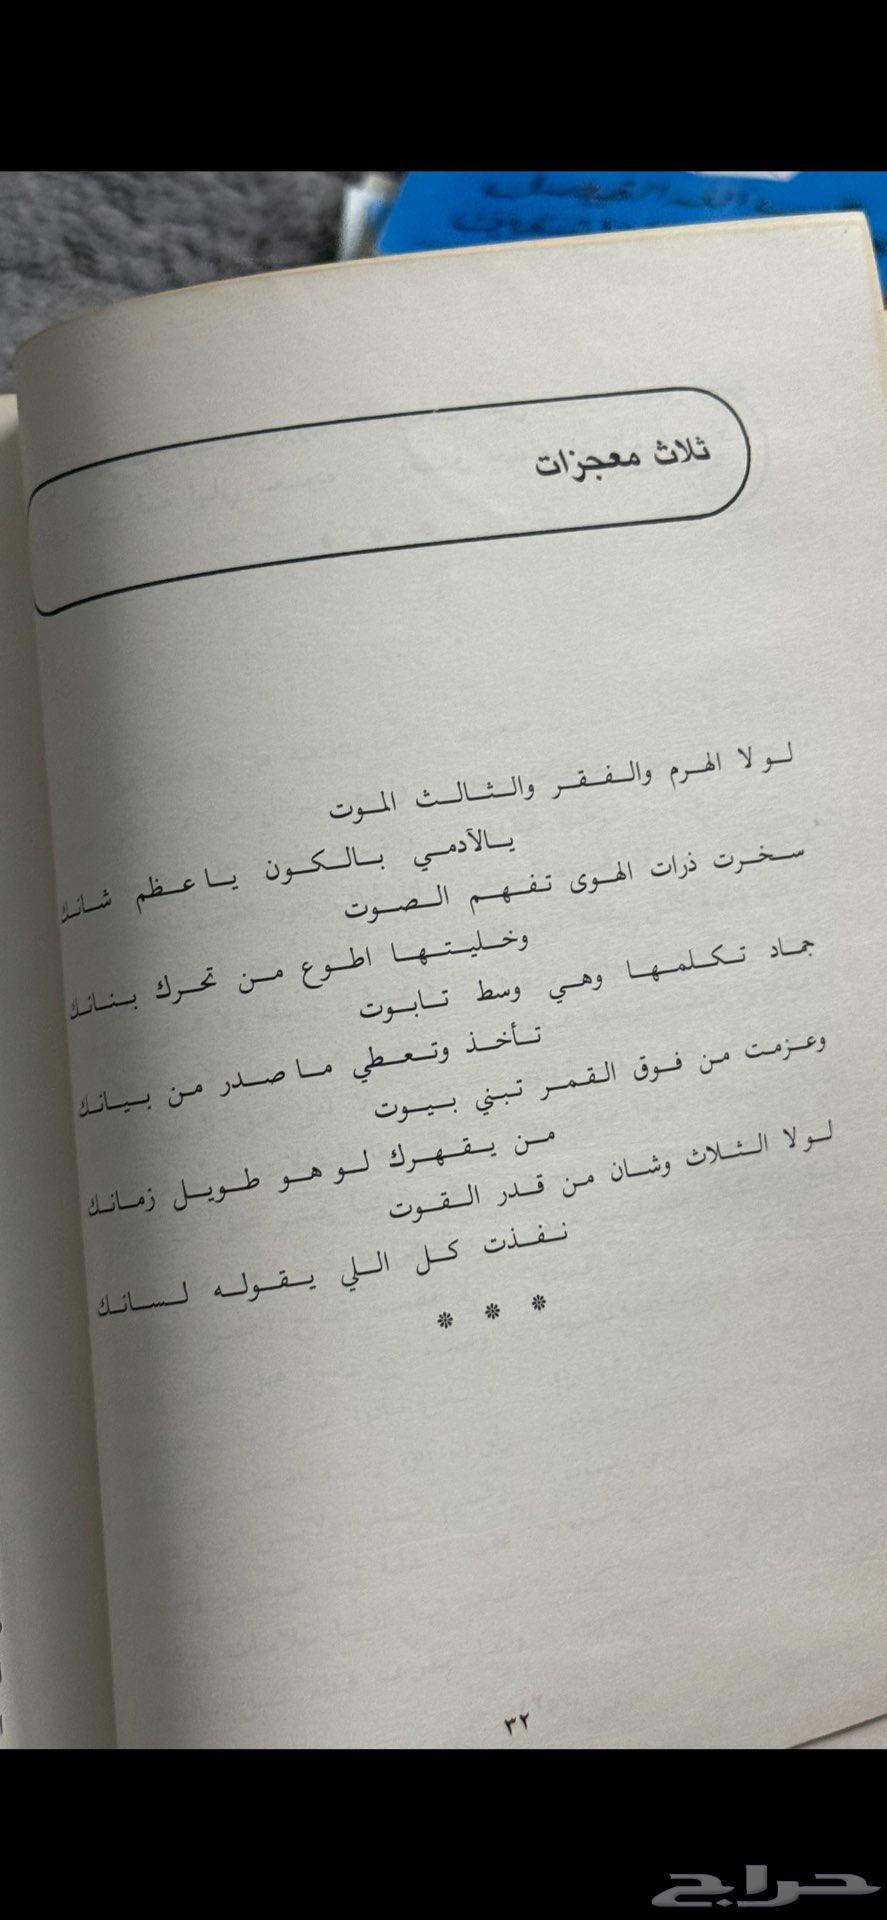 ثلاث معجزات
لولا الهرم والفقر والثالث الموت
يالآدمي بالكون ياعظم شانك
سخرت ذرات الهوى تفهم الصوت
وخليتها اطوع من تحرك بنانك
جماد تكلمها وهي وسط تابوت
تأخذ وتعطي ماصدر من بيانك
وعزمت من فوق القمر تبني بيوت
من يقهرك لوهو طويل زمانك
لولا الثلاث وشان من قدر القوت
نفذت كل اللي يقوله لسانك
* * *
٣٢
حراج